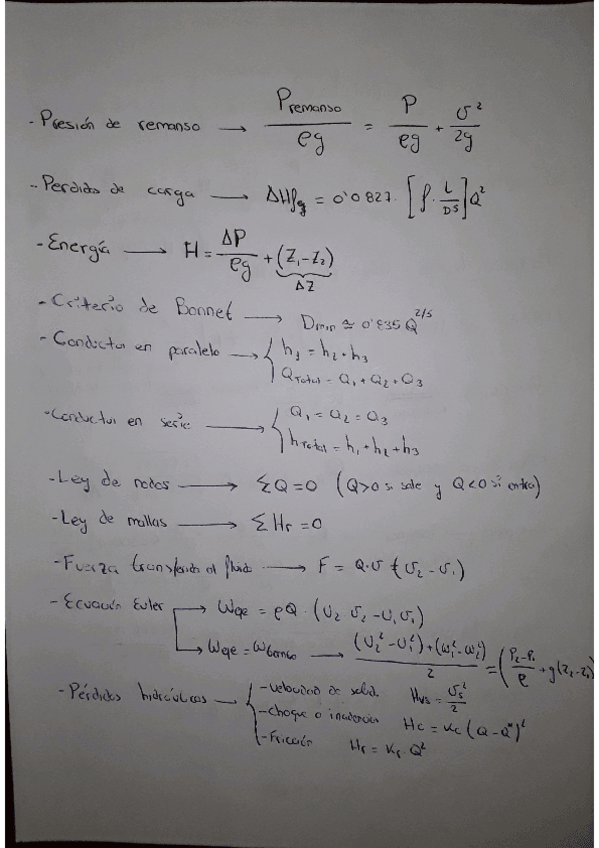 - Presión de remanso → P remanso / ρg = P / ρg + v² / 2g
- Perdidas de carga → ΔHfg = 0'0827 · [f · L / D5] Q²
- Energía → H = ΔP / ρg + (Z₁ - Z₂)
ΔZ
- Criterio de Bonnet → Dmin ≃ 0'835 Q^2/5
- Conductos en paralelo → { h₁ = h₂ = h₃
Qtotal = Q₁ + Q₂ + Q₃
- Conductos en serie → { Q₁ = Q₂ = Q₃
htotal = h₁ + h₂ + h₃
- Ley de nodos → ΣQ = 0 (Q>0 si sale y Q<0 si entra)
- Ley de mallas → ΣHr = 0
- Fuerza transferida al fluido → F = Q·υ (υ₂ - υ₁)
- Ecuación Euler → Weje = ρQ · (U₂ υ₂ - U₁ υ₁)
→ Weje = → (U₂² - U₁²) + (w₁² - w₂²) / 2 = (P₂ - P₁ / ρ + g(Z₂ - Z₁)
- Pérdidas hidráulicas → { - velocidad de salida Hvs = υs² / 2
- choque o incidencia Hc = Kc (Q - Q*)²
- Fricción Hf = Kf · Q²